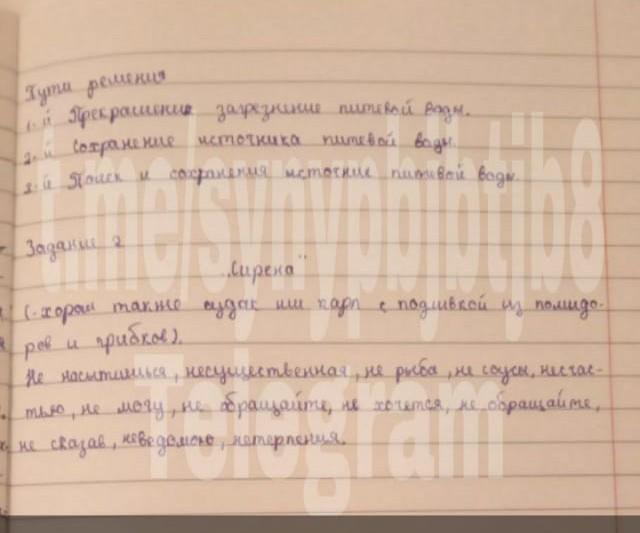 Пути решения
1.й Прекращение загрезнение питевой воды.
2.й Сохранение источника питевой воды.
3.й Поиск и сохранения источние питивой воды.
Задание 2
"Сирена"
(-хорош также судак или карп с подливкой из помидо-
ров и грибков).
Не насытишься, несущественная, не рыба, не соусы, несчас-
тью, не могу, не обращайте, не хочется, не обращайте,
не сказав, неведомою, нетерпения.
t.me/synypbjbtjb8
Telegram